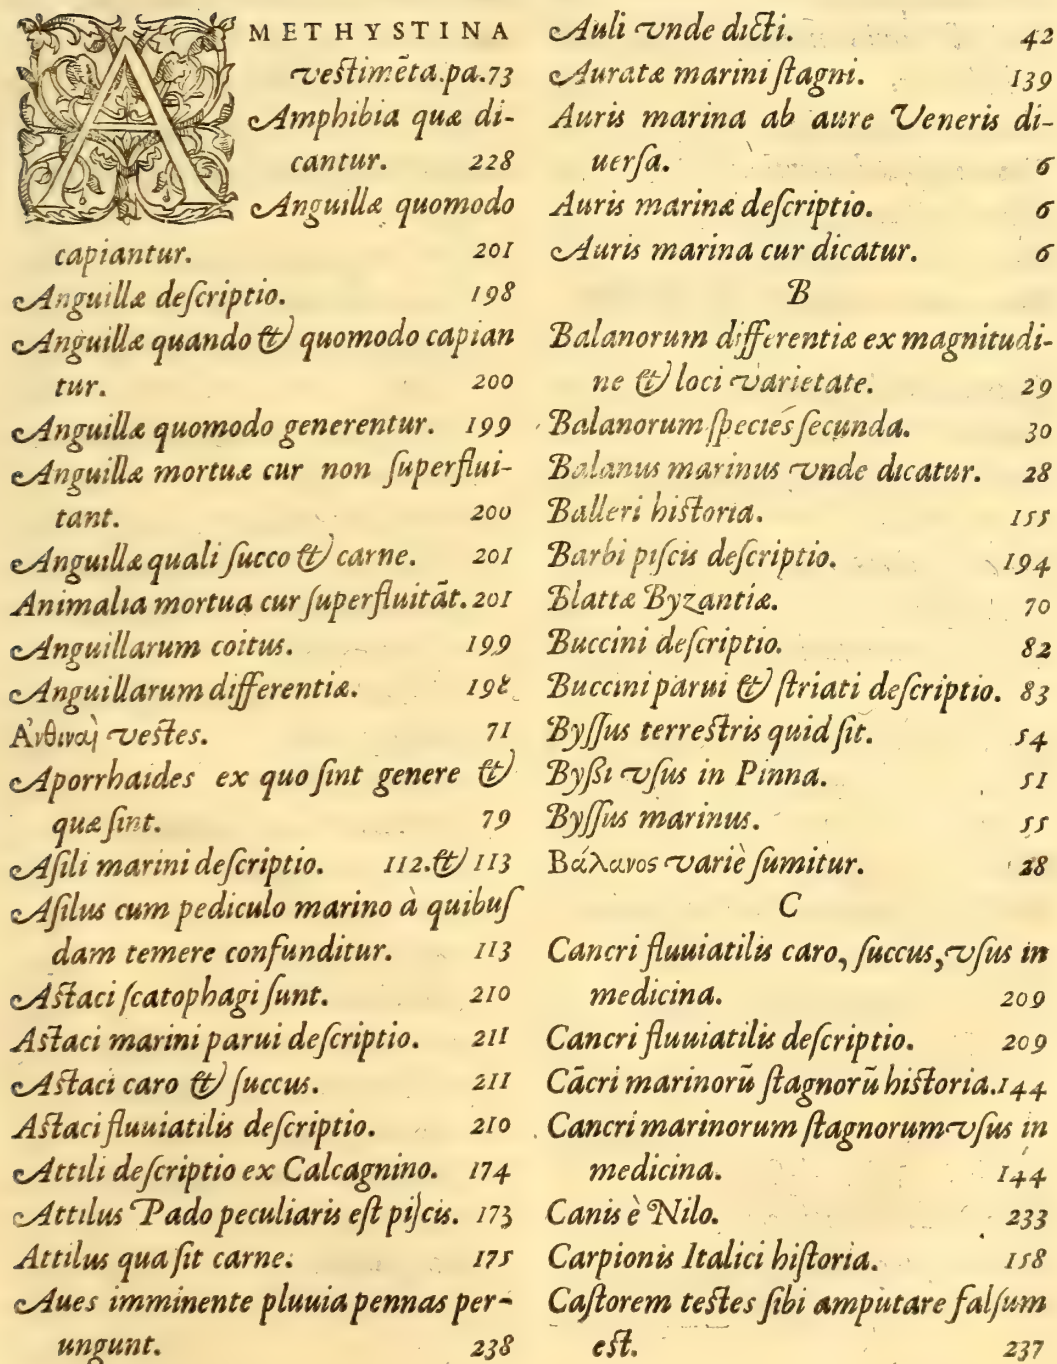 AMETHYSTINA
vestimẽta.pa.73
Amphibia quæ di-
cantur. 228
Anguillæ quomodo
capiantur. 201
Anguillæ descriptio. 198
Anguillæ quando & quomodo capian
tur. 200
Anguillæ quomodo generentur. 199
Anguillæ mortuæ cur non superflui-
tant. 200
Anguillæ quali succo & carne. 201
Animalia mortua cur superfluitãt. 201
Anguillarum coitus. 199
Anguillarum differentiæ. 198
Ἀνθιναὶ vestes. 71
Aporrhaides ex quo sint genere &
quæ sint. 79
Asili marini descriptio. 112.& 113
Asilus cum pediculo marino à quibus
dam temere confunditur. 113
Astaci scatophagi sunt. 210
Astaci marini parui descriptio. 211
Astaci caro & succus. 211
Astaci fluuiatilis descriptio. 210
Attili descriptio ex Calcagnino. 174
Attilus Pado peculiaris est piscis. 173
Attilus qua sit carne. 175
Aues imminente pluuia pennas per-
ungunt. 238
Auli vnde dicti. 42
Auratæ marini stagni. 139
Auris marina ab aure Veneris di-
uersa. 6
Auris marinæ descriptio. 6
Auris marina cur dicatur. 6
B
Balanorum differentiæ ex magnitudi-
ne & loci varietate. 29
Balanorum species secunda. 30
Balanus marinus vnde dicatur. 28
Balleri historia. 155
Barbi piscis descriptio. 194
Blattæ Byzantiæ. 70
Buccini descriptio. 82
Buccini parui & striati descriptio. 83
Byssus terrestris quid sit. 54
Byßi vsus in Pinna. 51
Byssus marinus. 55
Βάλανος variè sumitur. 28
C
Cancri fluuiatilis caro, succus, vsus in
medicina. 209
Cancri fluuiatilis descriptio. 209
Cãcri marinorũ stagnorũ historia. 144
Cancri marinorum stagnorum vsus in
medicina. 144
Canis è Nilo. 233
Carpionis Italici historia. 158
Castorem testes sibi amputare falsum
est. 237